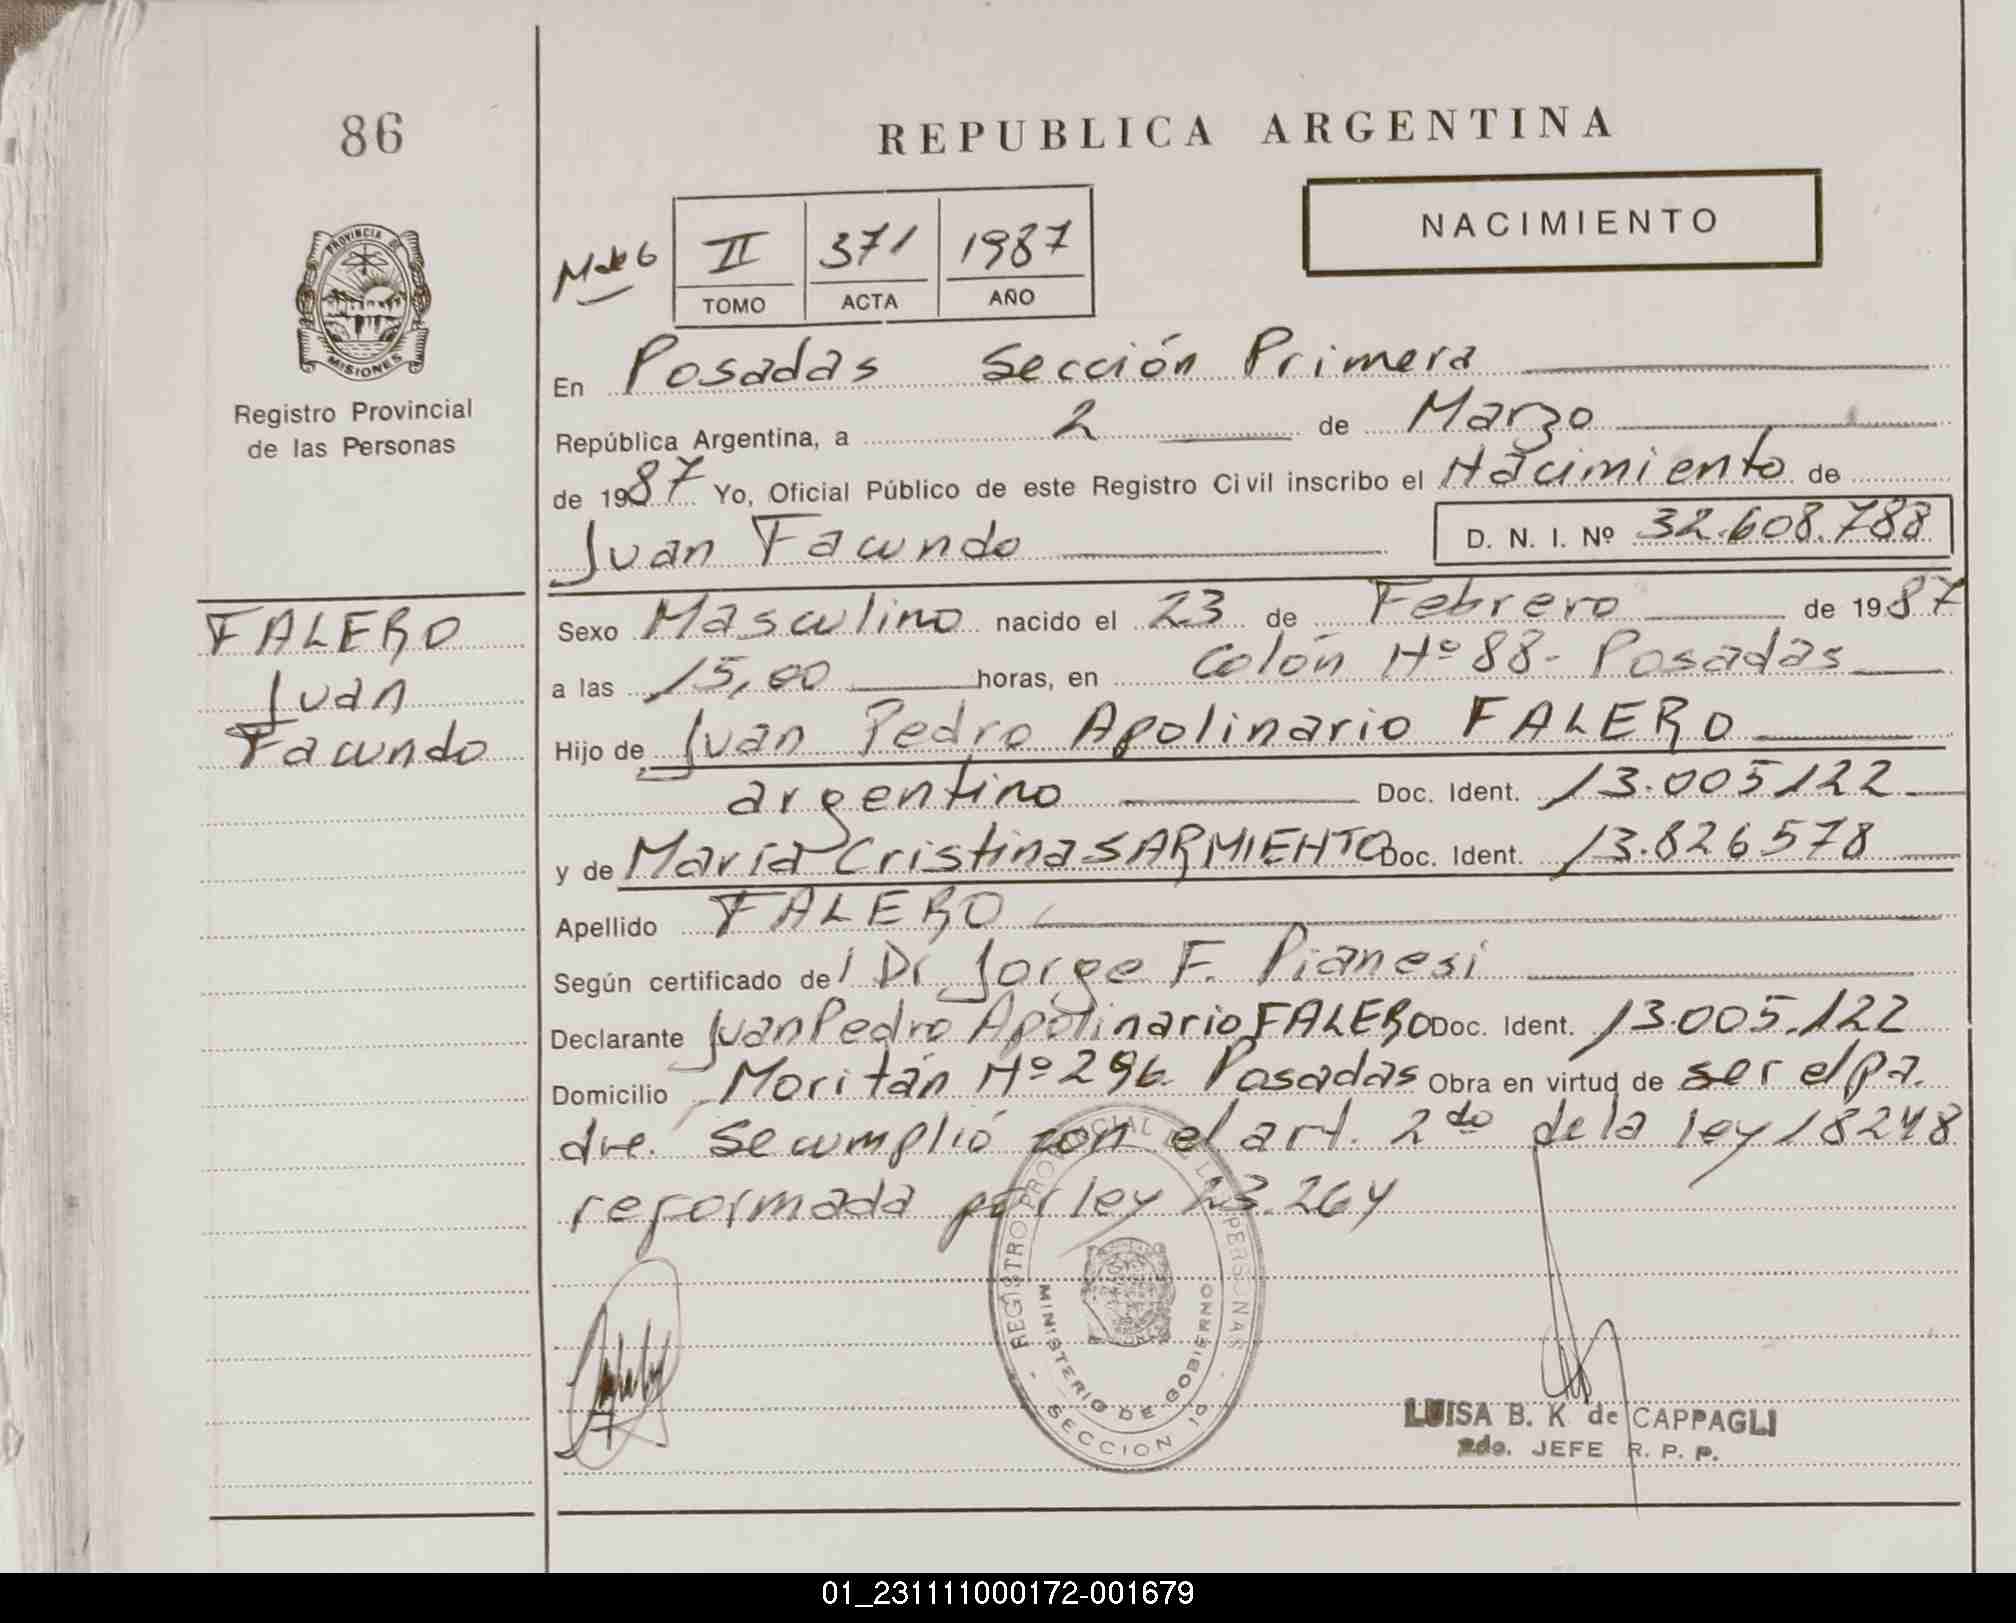 86
REPUBLICA ARGENTINA
NACIMIENTO
II 371 1987
TOMO ACTA AÑO
PROVINCIA DE
MISIONES
Registro Provincial
de las Personas
En Posadas Sección Primera
República Argentina, a 2 de Marzo
de 1987 Yo, Oficial Público de este Registro Civil inscribo el Nacimiento de
Juan Facundo D. N. I. Nº 32.608.788
FALERO
Juan
Facundo
Sexo Masculino nacido el 23 de Febrero de 1987
a las 15,00 horas, en Colón Nº 88- Posadas
Hijo de Juan Pedro Apolinario FALERO
argentino Doc. Ident. 13.005122
y de María Cristina SARMIENTO Doc. Ident. 13.826578
Apellido FALERO
Según certificado del Dr Jorge F. Pianesi
Declarante Juan Pedro Apolinario FALERO Doc. Ident. 13.005.122
Domicilio Moritán Nº 296. Posadas Obra en virtud de ser el pa.
dre. Se cumplió con el art. 2do de la ley 18248
reformada por ley 23.264
REGISTRO PROVINCIAL DE LAS PERSONAS
MINISTERIO DE GOBIERNO
- SECCION 1a -
LUISA B. K. de CAPPAGLI
2do. JEFE R. P. P.
01_231111000172-001679